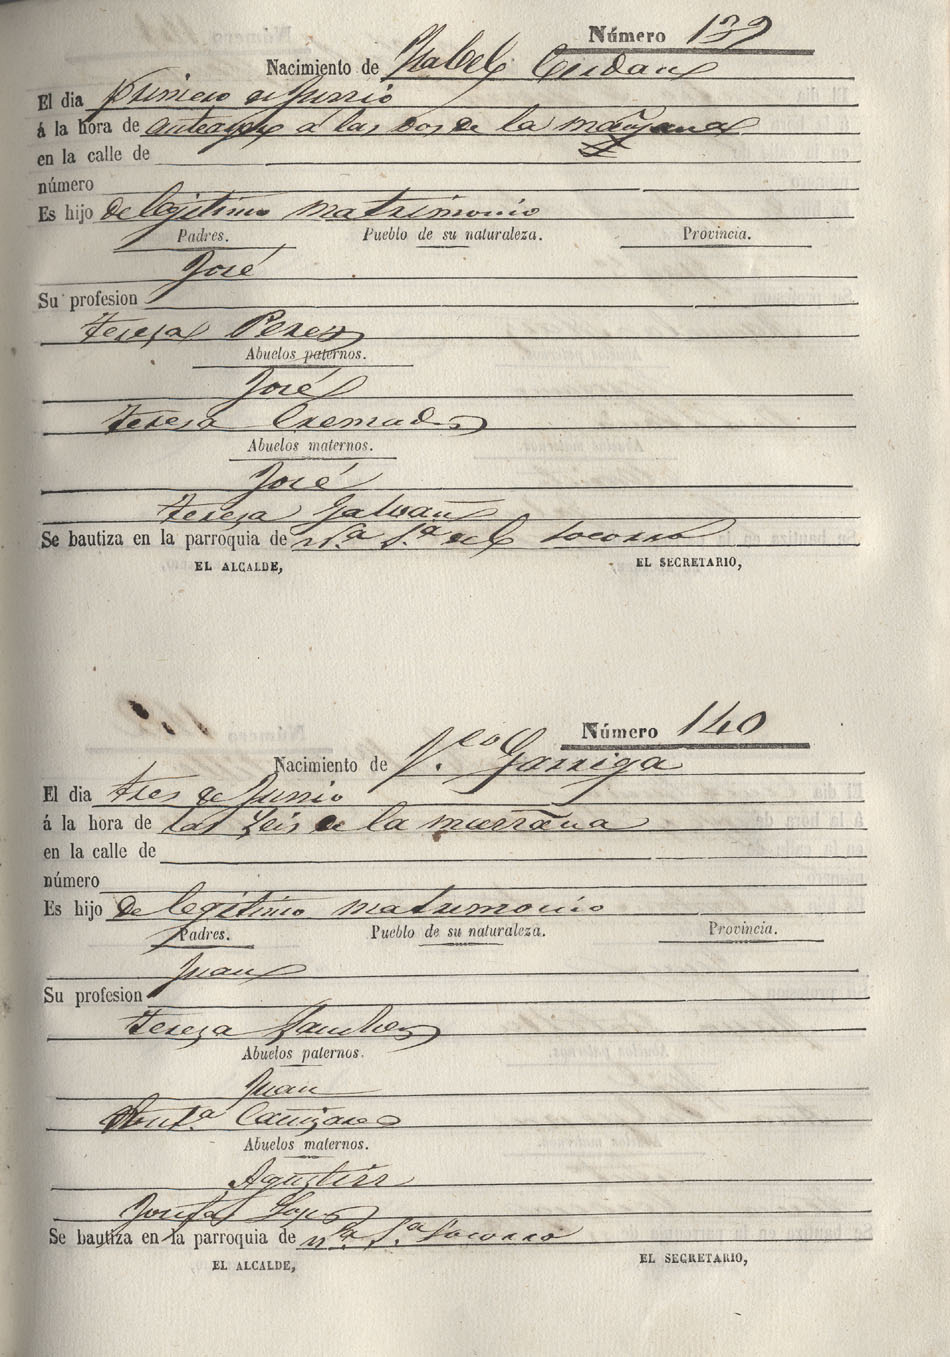 Número 139
Nacimiento de Ysabel Cerdan
El dia primero de Junio
á la hora de anteayer a las dos de la mañana
en la calle de
número
Es hijo de legitimo matrimonio
Padres. Pueblo de su naturaleza. Provincia.
José
Su profesion
Teresa Perez
Abuelos paternos.
José
Teresa Cremades
Abuelos maternos.
José
Teresa Galvañ
Se bautiza en la parroquia de Nª Sª del Socorro
EL ALCALDE, EL SECRETARIO,
Número 140
Nacimiento de Garriga
El dia tres de Junio
á la hora de las seis de la mañana
en la calle de
número
Es hijo de legitimo matrimonio
Padres. Pueblo de su naturaleza. Provincia.
Juan
Su profesion
Teresa Sanchez
Abuelos paternos.
Juan
Cañizares
Abuelos maternos.
Agustin
Josefa Lopez
Se bautiza en la parroquia de Nª Sª Socorro
EL ALCALDE, EL SECRETARIO,